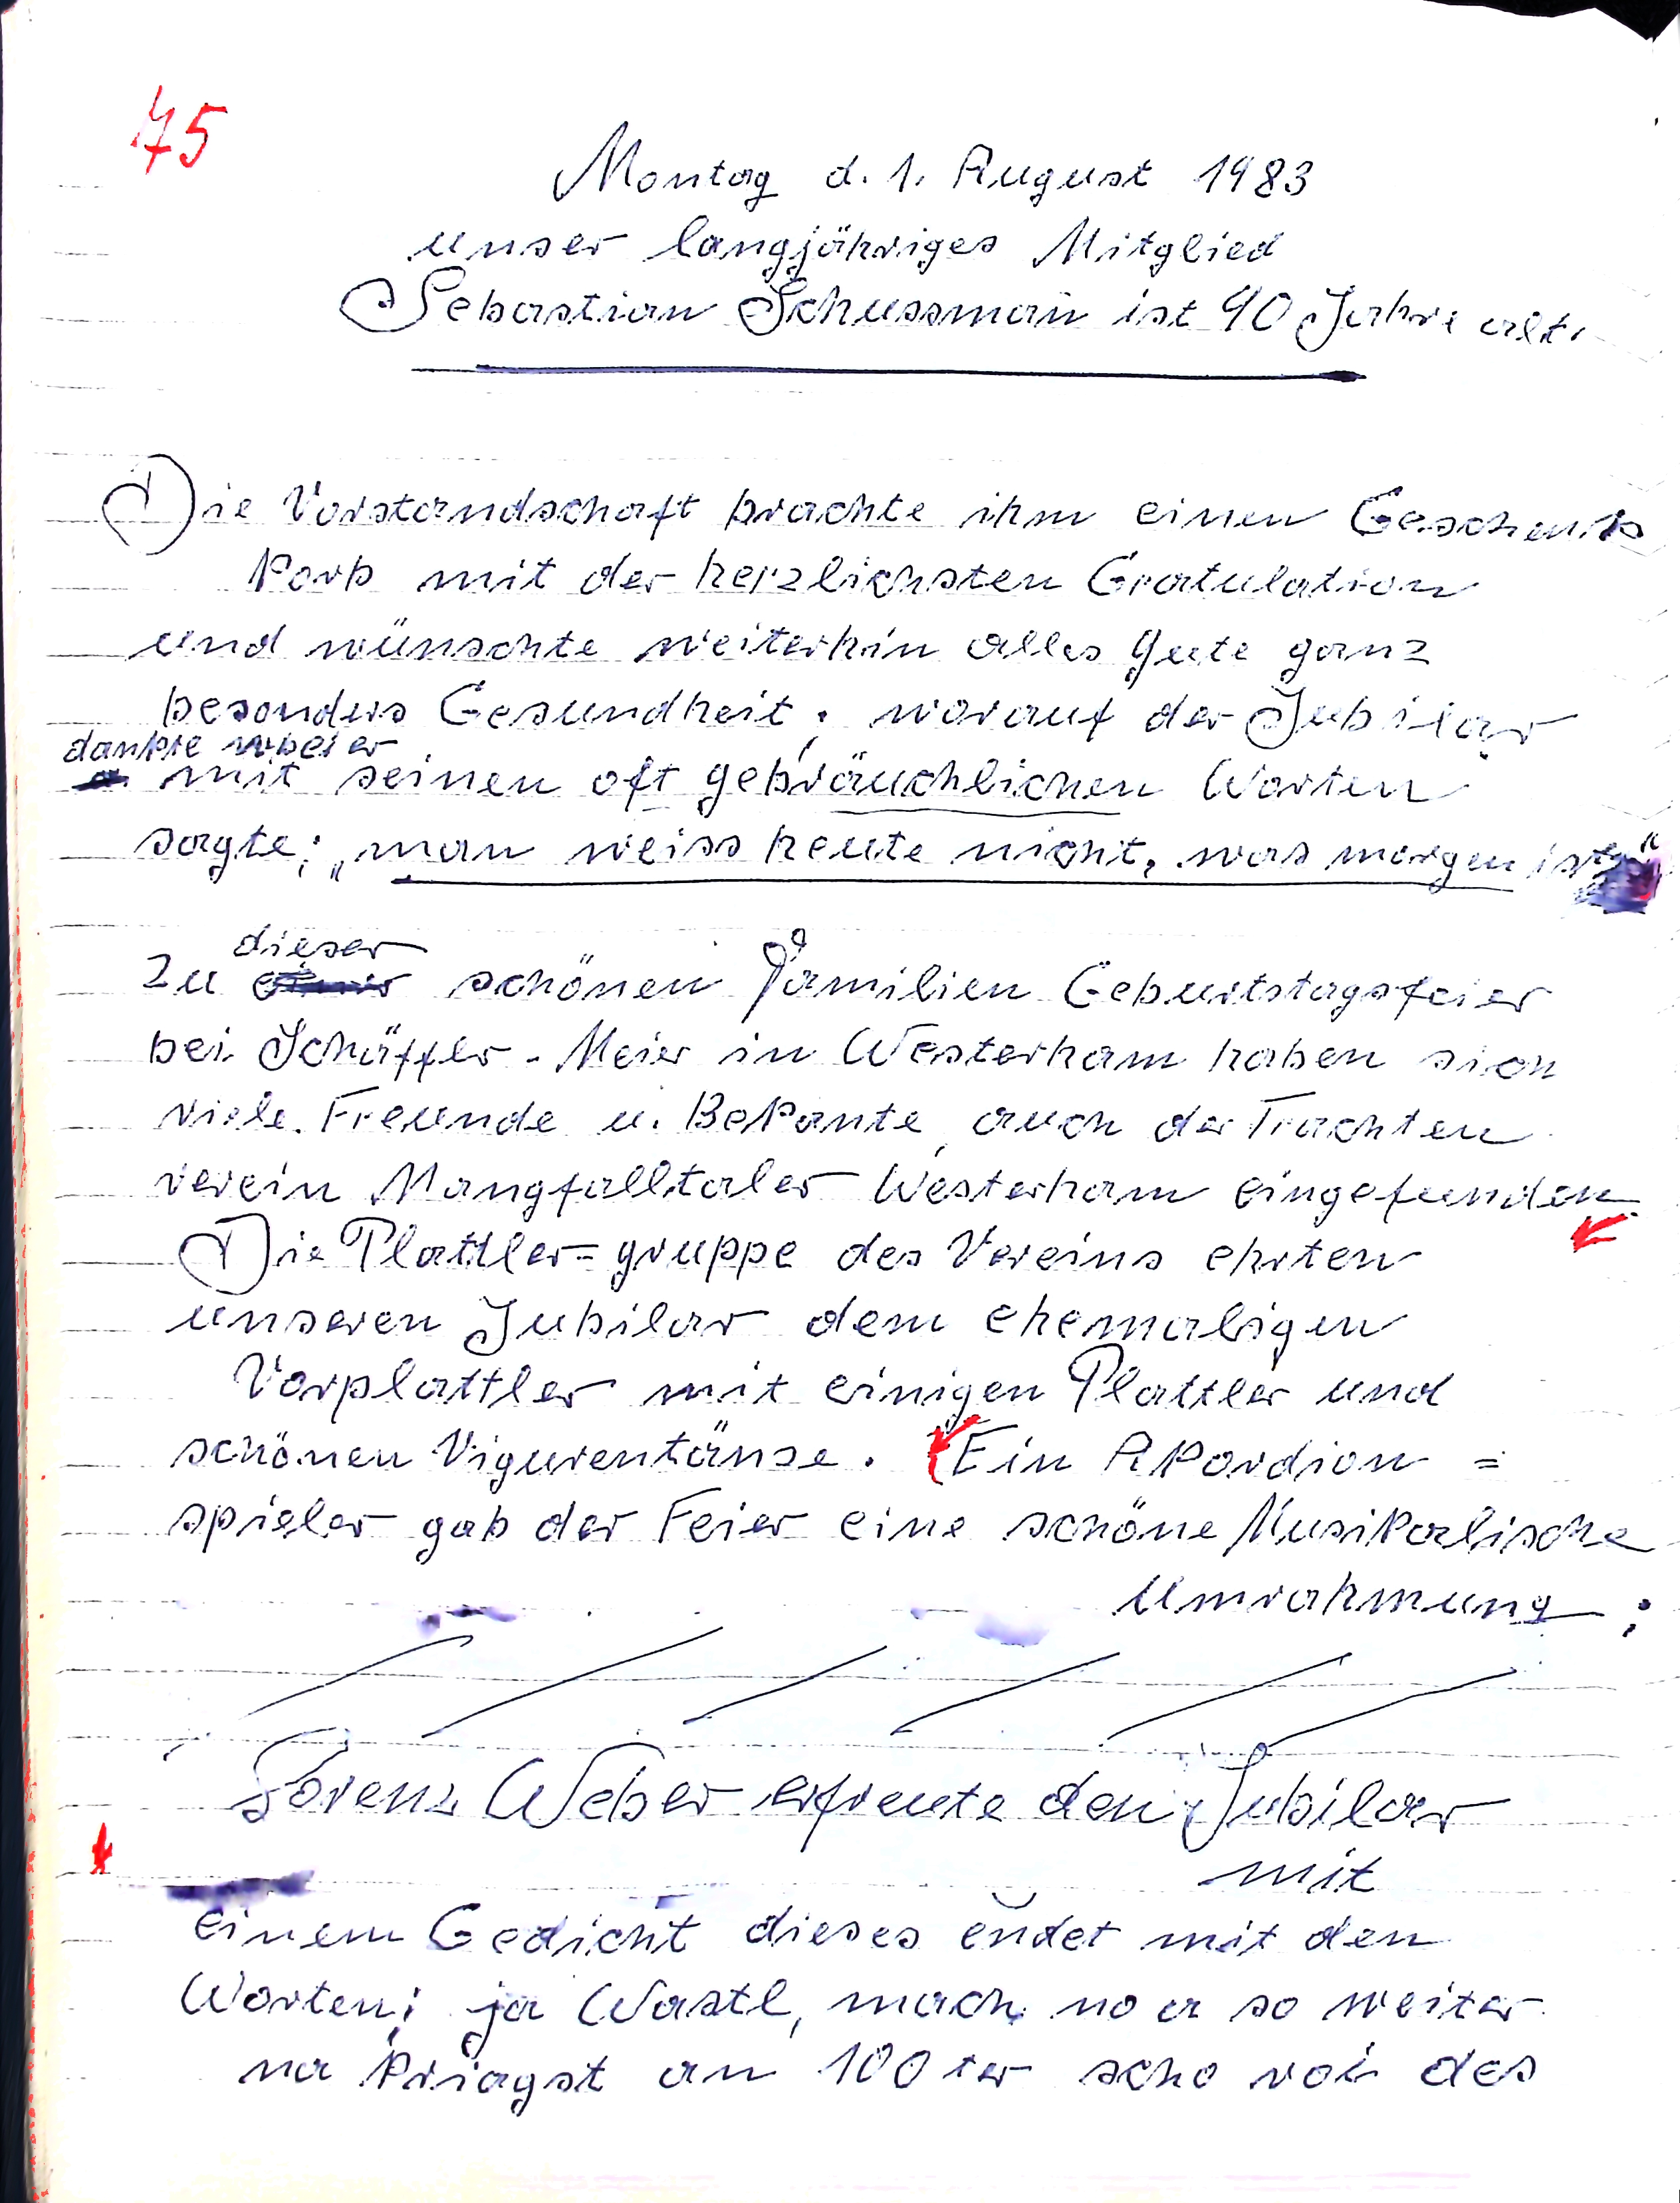 75
Montag d. 1. August 1983
unser langjähriges Mitglied
Sebastian Schussman̄ ist 90 Jahre alt.
Die Vorstandschaft brachte ihm einen Geschenk
korb mit der herzlichsten Gratulation
und wünschte weiterhin alles Gute ganz
besonders Gesundheit, worauf der Jubilar
dankte wobei er
mit seinen oft gebräuchlichen Worten
sagte; „man weiss heute nicht, was morgen ist“
dieser
Zu schönen Familien Geburtstagsfeier
bei Schäffler-Meier in Westerham haben sich
viele Freunde u. Bekante, auch der Trachten
verein Mangfalltaler Westerham eingefunden.
Die Plattler=gruppe des Vereins ehrten
unseren Jubilar dem ehemaligen
Vorplattler mit einigen Plattler und
schönen Vigurentänze. Ein Akordion =
spieler gab der Feier eine schöne Musikalische
Umrahmung;
Lorenz Weber erfreute den Jubilar
mit
einem Gedicht dieses endet mit den
Worten; ja Wastl, mach no a so weiter
na kriagst an 100ter scho voi des